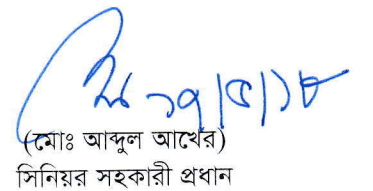 ১৭/৫/১৮
(মোঃ আব্দুল আখের)
সিনিয়র সহকারী প্রধান